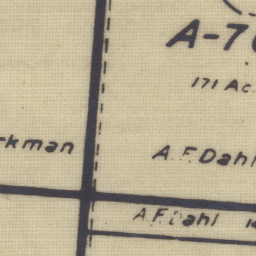 A-70
171 Ac.
rkman
A.F. Dahl
A.F. Dahl